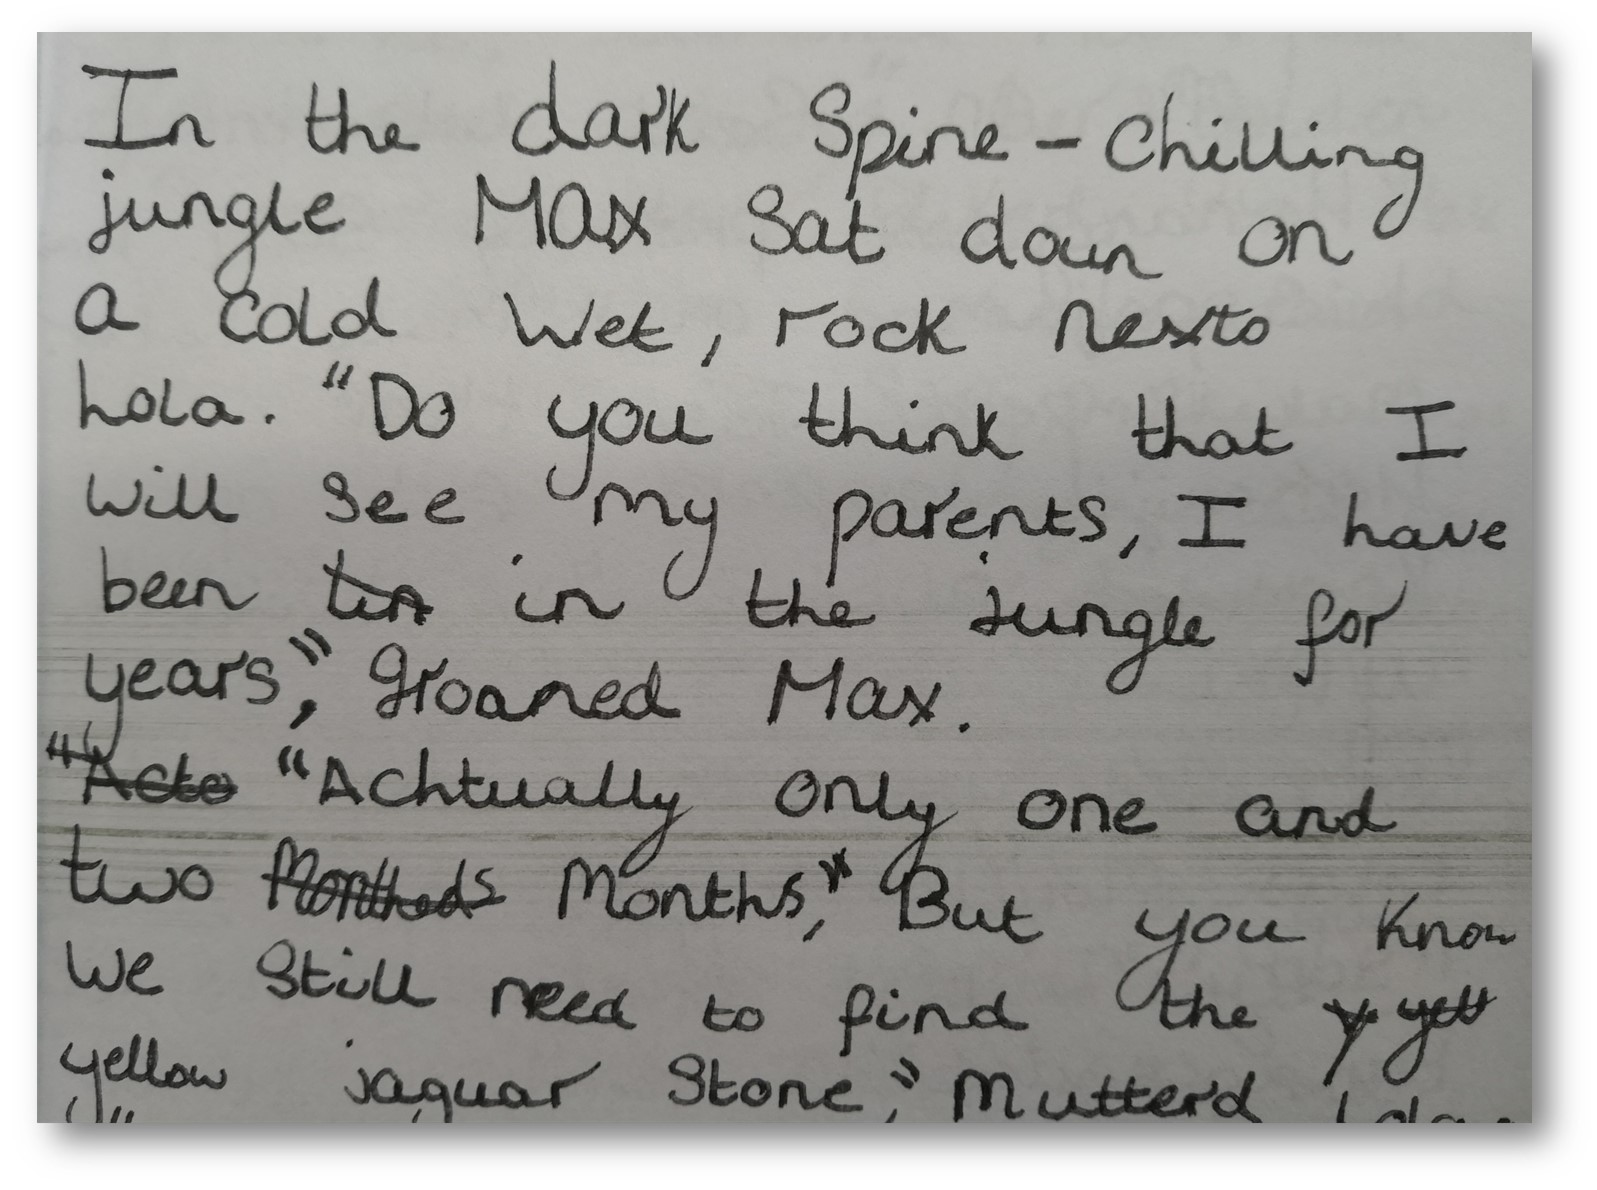 In the dark Spine-Chilling
jungle MAx Sat down on
a cold Wet, rock nexto
Lola. "Do you think that I
will see my parents, I have
been in the jungle for
years," groaned Max.
"Acto "Achtually only one and
two Months," But you know
We Still need to find the y yell
yellow jaguar Stone," Mutterd Lola.